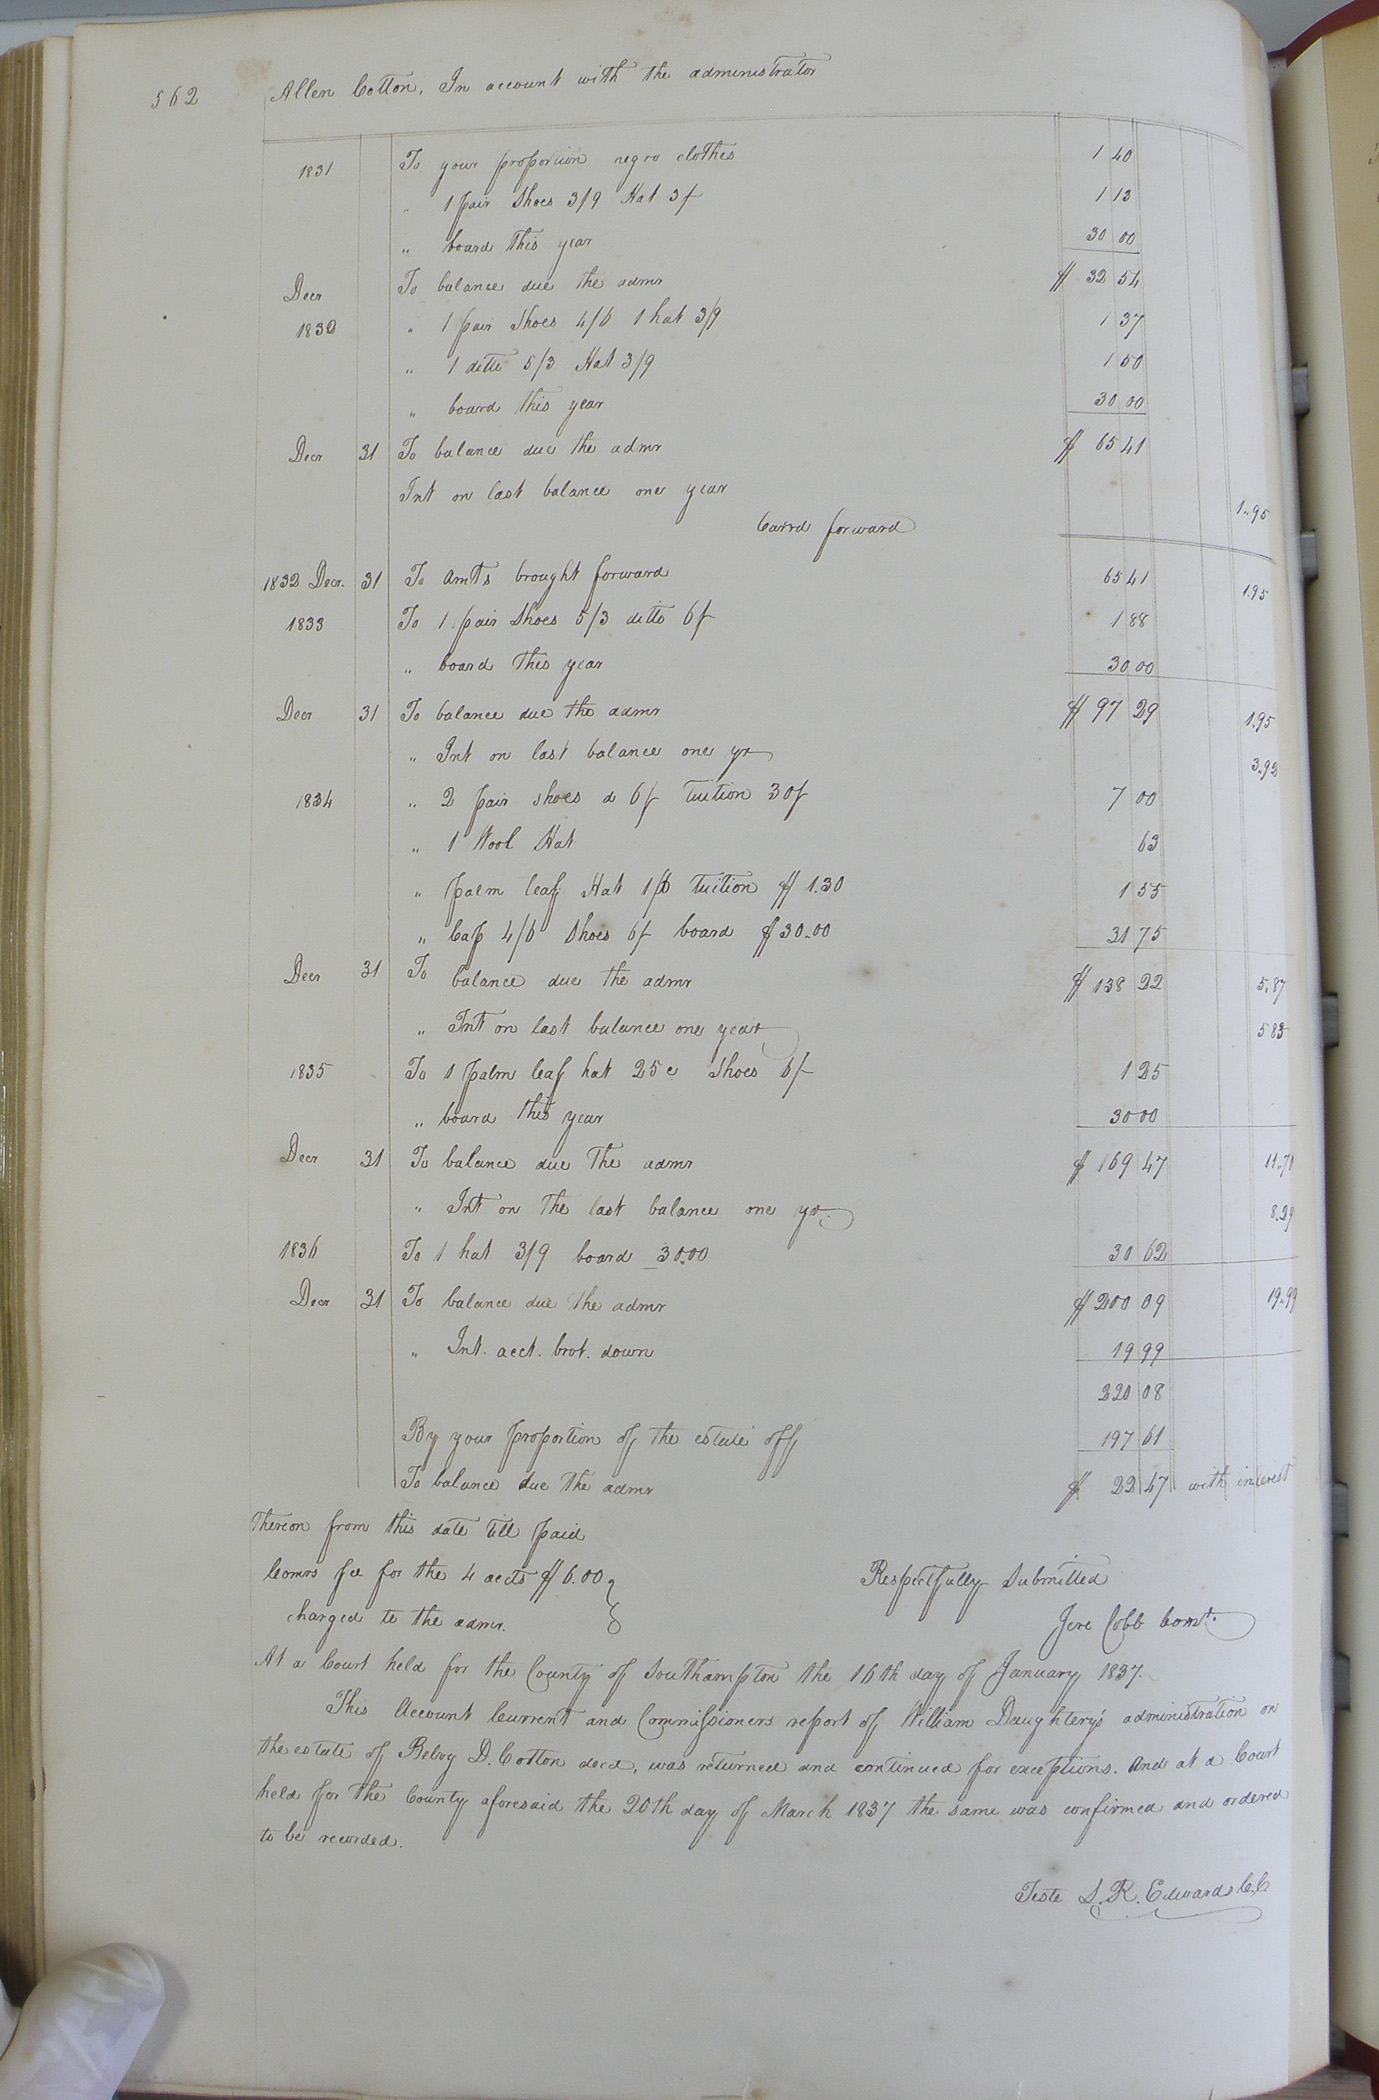 562 Allen Cotton, In account with the administrator
1831 To your proportion negro clothes 1 40
" 1 pair Shoes 3/9 Hat 3/ 1 13
" board this year 30 00
Decr To balance due the admr $ 32 54
1832 " 1 pair Shoes 4/6 1 hat 3/9 1 37
" 1 ditto 5/3 Hat 3/9 1 50
" board this year 30 00
Decr 31 To balance due the admr $ 65 41
Int on last balance one year 1.95
Carrd forward
1832 Decr. 31 To Amts brought forward 65 41 1.95
1833 To 1 pair Shoes 5/3 ditto 6/ 1 88
" board this year 30 00
Decr 31 To balance due the admr $ 97 29 1.95
" Int on last balance one yr 3.92
1834 " 2 pair shoes a 6/ tuition 30/ 7 00
" 1 Wool Hat 63
" palm leaf Hat 1/6 tuition $ 1.30 1 55
" Cap 4/6 Shoes 6/ board $ 30.00 31 75
Decr 31 To balance due the admr $ 138 22 5.87
" Int on last balance one year 5 83
1835 To 1 palm leaf hat 25 c Shoes 6/ 1 25
" board this year 30 00
Decr 31 To balance due the admr $ 169 47 11.70
" Int on the last balance one yr. 8.29
1836 To 1 hat 3/9 board 30.00 30 62
Decr 31 To balance due the admr $ 200 09 19.99
" Int. acct. brot. down 19 99
220 08
By your proportion of the estate off 197 61
To balance due the admr $ 22 47 with interest
thereon from this date till paid
Comrs fee for the 4 accts $ 6.00 Respectfully Submitted
charged to the admr. Jere Cobb Comr.
At a Court held for the County of Southampton the 16th day of January 1837.
This Account Current and Commissioners report of William Daughtery's administration on
the estate of Belvy D. Cotton decd, was returned and continued for exceptions. And at a Court
held for the County aforesaid the 20th day of March 1837 the same was confirmed and ordered
to be recorded.
Teste L. R. Edwards C.C